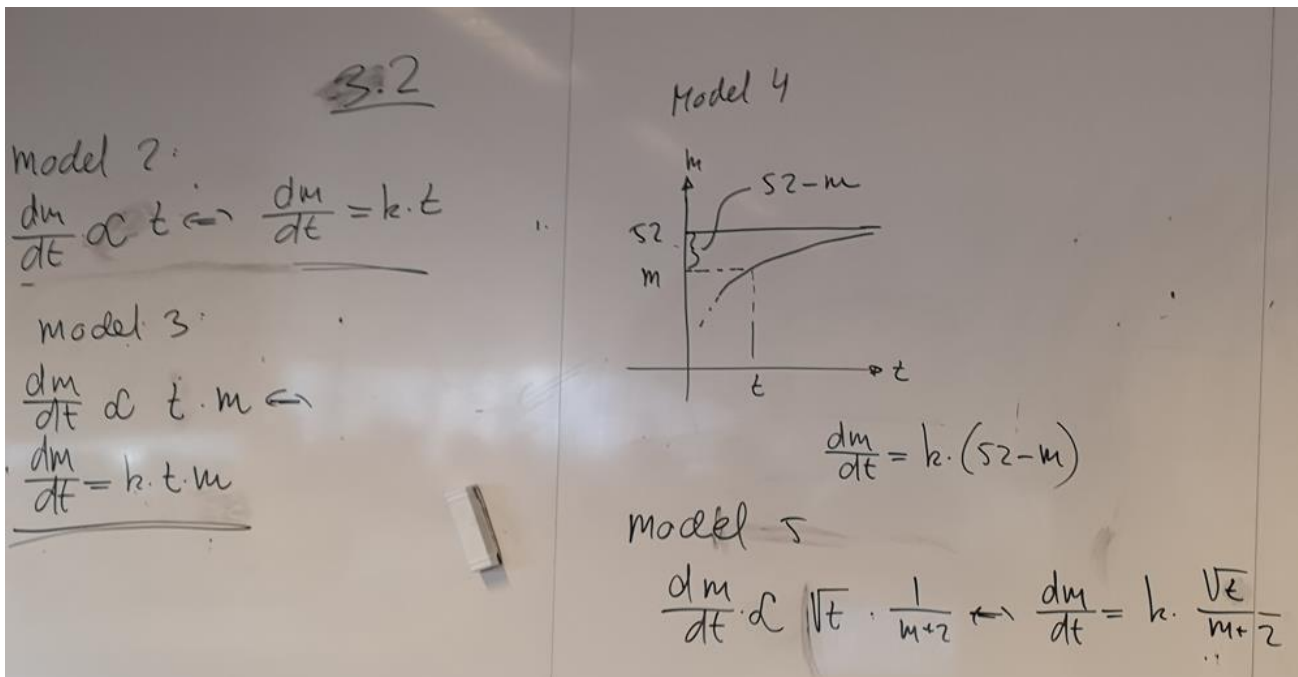 3.2
model 2:
dm/dt ∝ t ⇔ dm/dt = k·t
model 3:
dm/dt ∝ t·m ⇔
dm/dt = k·t·m
Model 4
m
52-m
52
m
t
t
dm/dt = k·(52-m)
model 5
dm/dt ∝ √t · 1/(m+2) ⇔ dm/dt = k· √t/(m+2)